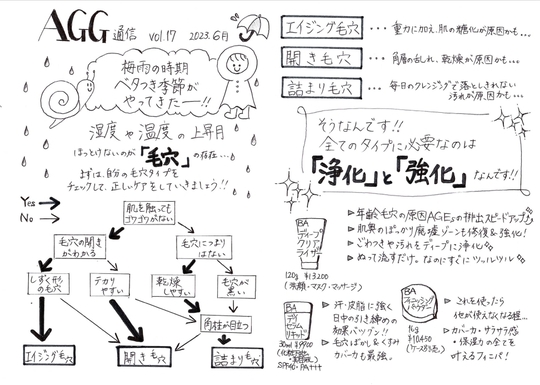 AGG通信 vol.17 2023.6月
梅雨の時期
ベタつき季節が
やってきたー!!
湿度や温度の上昇月
ほっとけないのが「毛穴」の存在…
まずは、自分の毛穴タイプを
チェックして、正しいケアをしていきましょう!!
Yes
No
肌を触っても
ゴワゴワがない
毛穴の開き
がわかる
毛穴につまり
はない
しずく形
の毛穴
テカリ
やすい
乾燥
しやすい
毛穴が
黒い
角栓が目立つ
エイジング毛穴
開き毛穴
詰まり毛穴
エイジング毛穴 ・・・ 重力に加え、肌の糖化が原因かも…
開き毛穴 ・・・ 角層の乱れ、乾燥が原因かも…
詰まり毛穴 ・・・ 毎日のクレンジングで落としきれない
汚れが原因かも…
そうなんです!!
全てのタイプに必要なのは
「浄化」と「強化」なんです!!
BA
ディープ
クリア
ライザー
120g ¥13200
(洗顔・マスク・マッサージ)
▷年齢毛穴の原因AGEsの排出スピードアップ
▷肌奥のぽっかり廃墟ゾーンも修復&強化!
▷ごわつきや汚れをディープに浄化
▷ぬって流すだけ。なのにすぐにツッルツル
BA
デイ
セラム
30ml ¥9900
SPF40・PA+++
▷汗・皮脂に強く
日中の引き締めの
効果バツグン!!
▷毛穴ぼかし&くすみ
カバー力も最強。
BA
フィニッシング
パウダー
16g
¥10450
(ケース別売)
▷これを使ったら
他が使えなくなる程…
▷カバー力・サラサラ感
・保湿力の全てを
叶えるフィニパ!